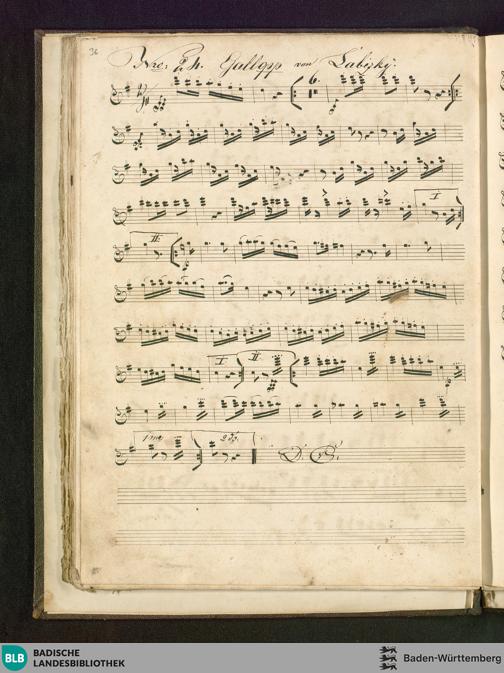 36
Nro. 24. Gallopp von Labitzky.
6.
I.
II.
I.
II.
1mo
2do
D. C.
BLB BADISCHE
LANDESBIBLIOTHEK
Baden-Württemberg